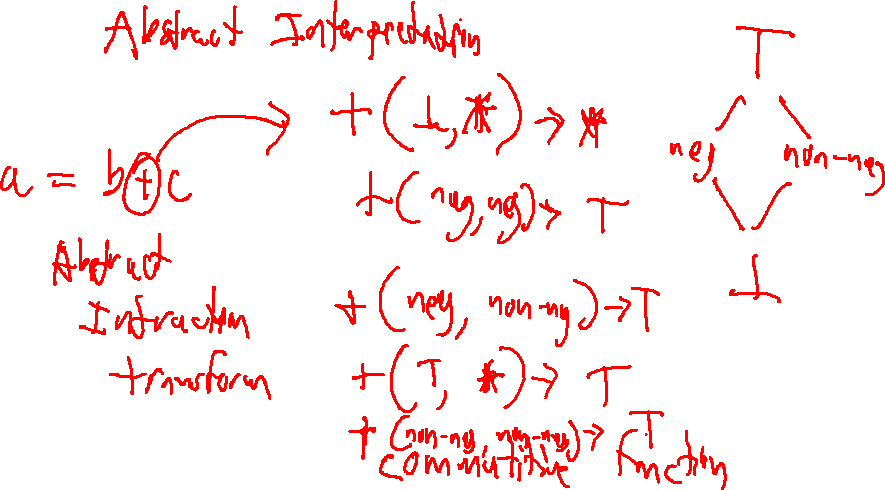 Abstract Interpretation
a = b + c
Abstract
Instruction
transform
+ (⊥, *) → *
+ (neg, neg) → T
+ (neg, non-neg) → T
+ (T, *) → T
+ (non-neg, non-neg) → T
commutitive function
T
neg non-neg
⊥